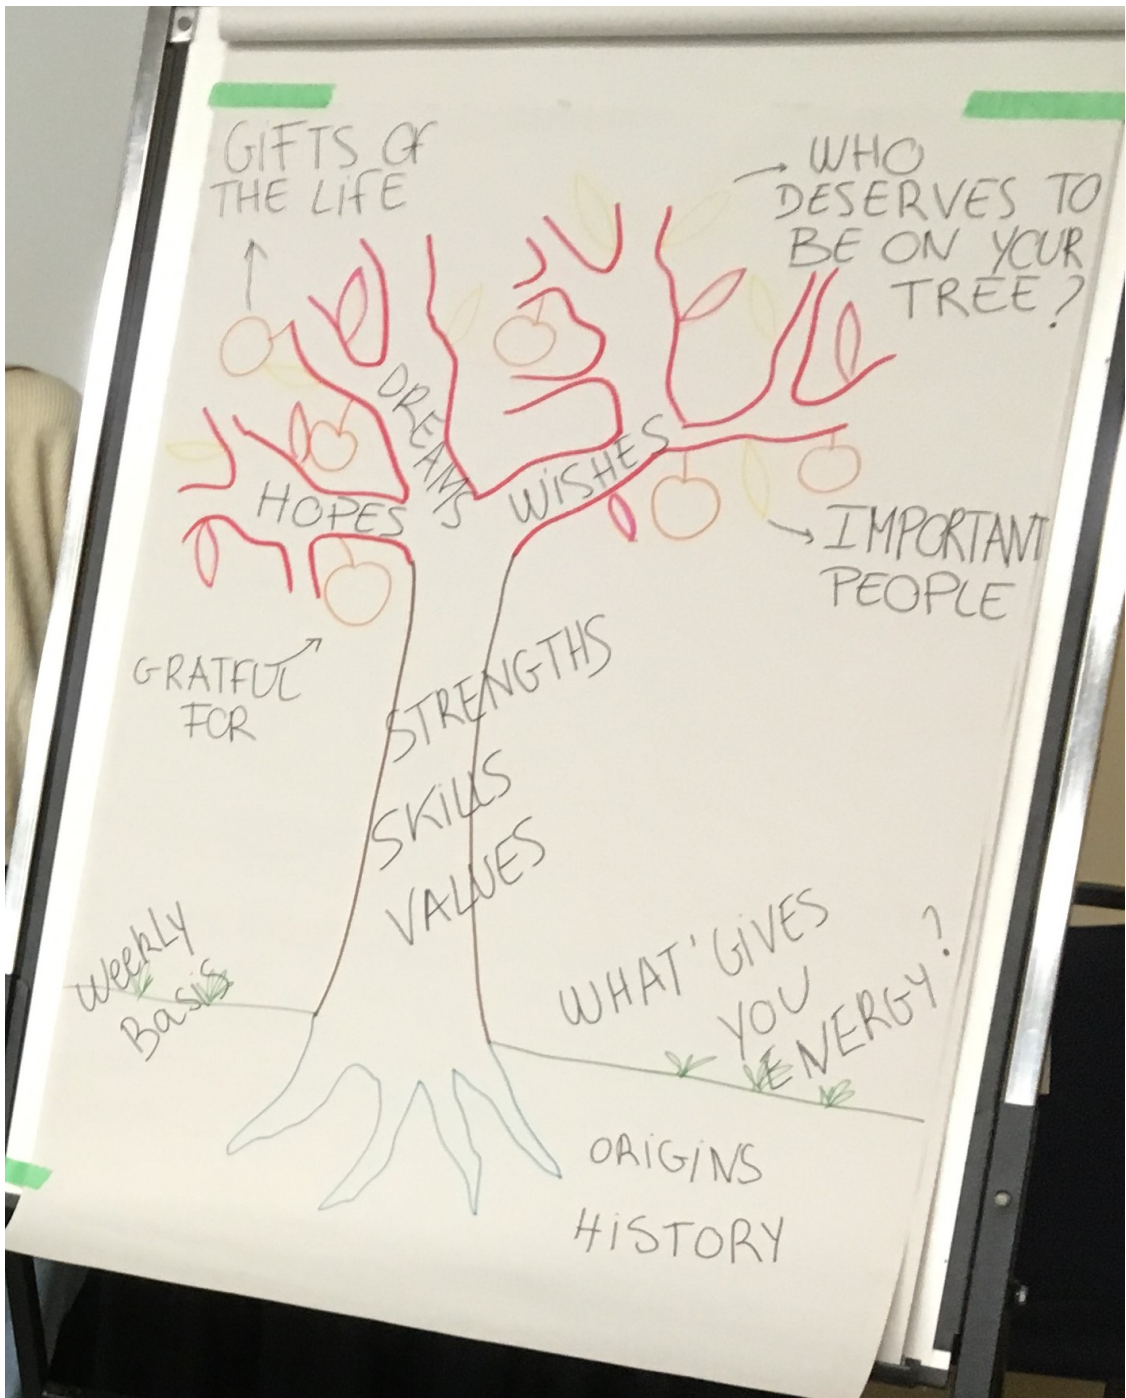 GiFTS OF
THE LiFE
WHO
DESERVES TO
BE ON YOUR
TREE?
DREAMS
WiSHES
HOPES
IMPORTANT
PEOPLE
GRATFUL
FOR
STRENGTHS
SKiLLS
VALUES
Weekly
Basis
WHAT' GiVES
YOU
ENERGY?
ORiGiNS
HiSTORY